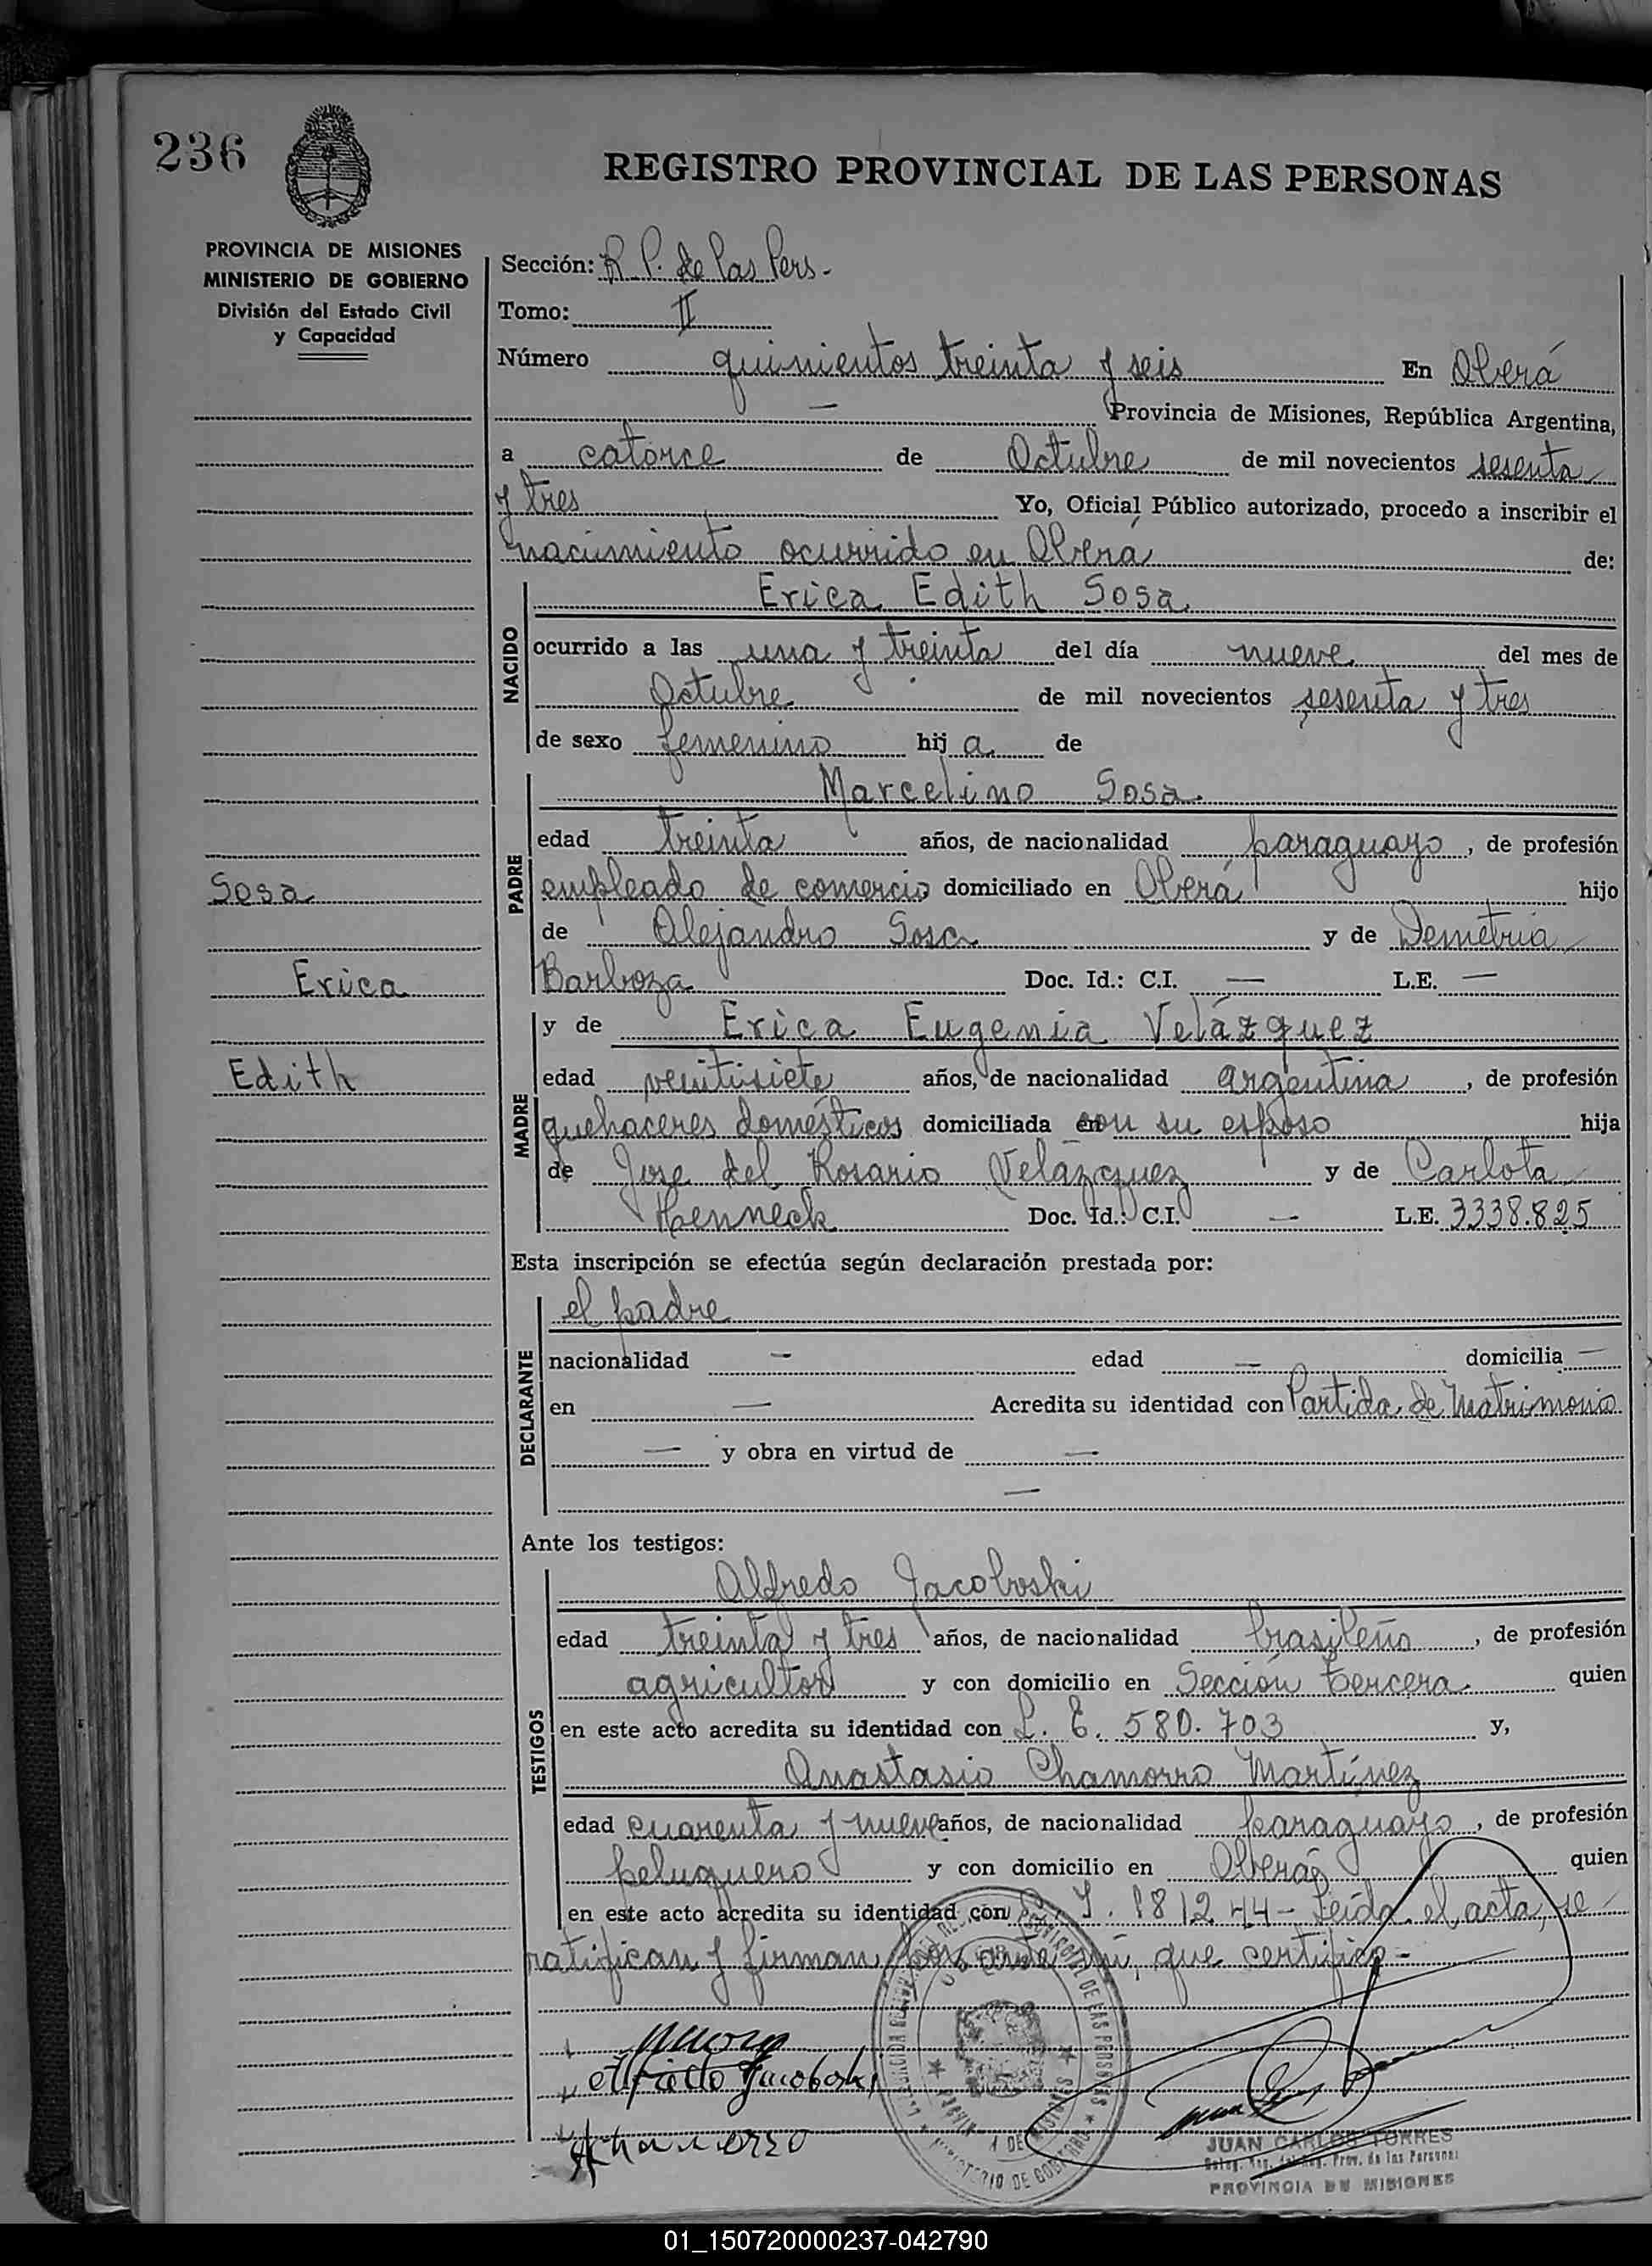 236
REGISTRO PROVINCIAL DE LAS PERSONAS
PROVINCIA DE MISIONES
MINISTERIO DE GOBIERNO
División del Estado Civil
y Capacidad
Sección: R. P. de las Pers.
Tomo: II
Número quinientos treinta y seis En Oberá
— Provincia de Misiones, República Argentina,
a catorce de Octubre de mil novecientos sesenta
y tres Yo, Oficial Público autorizado, procedo a inscribir el
nacimiento ocurrido en Oberá de:
Erica Edith Sosa
NACIDO
ocurrido a las una y treinta del día nueve del mes de
Octubre de mil novecientos sesenta y tres
de sexo femenino hij a de
Marcelino Sosa
PADRE
edad treinta años, de nacionalidad paraguayo, de profesión
empleado de comercio domiciliado en Oberá hijo
de Alejandro Sosa y de Demetria
Barboza Doc. Id.: C.I. — L.E. —
Sosa
Erica
Edith
MADRE
y de Erica Eugenia Velázquez
edad veintisiete años, de nacionalidad argentina, de profesión
quehaceres domésticos domiciliada con su esposo hija
de Jose del Rosario Velázquez y de Carlota
Henneck Doc. Id.: C.I. — L.E. 3338.825
Esta inscripción se efectúa según declaración prestada por:
el padre
DECLARANTE
nacionalidad — edad — domicilia —
en — Acredita su identidad con Partida de Matrimonio
— y obra en virtud de —
—
Ante los testigos:
Alfredo Jacoboski
TESTIGOS
edad treinta y tres años, de nacionalidad brasileño, de profesión
agricultor y con domicilio en Sección tercera quien
en este acto acredita su identidad con L. E. 580.703 y,
Anastasio Chamorro Martínez
edad cuarenta y nueve años, de nacionalidad paraguayo, de profesión
peluquero y con domicilio en Oberá quien
en este acto acredita su identidad con 181244- Leída el acta, se
ratifican y firman por ante mí, que certifico-
Alfredo Jacoboski
AChamorro
JUAN CARLOS TORRES
Prov. de las Personas
PROVINCIA DE MISIONES
01_150720000237-042790